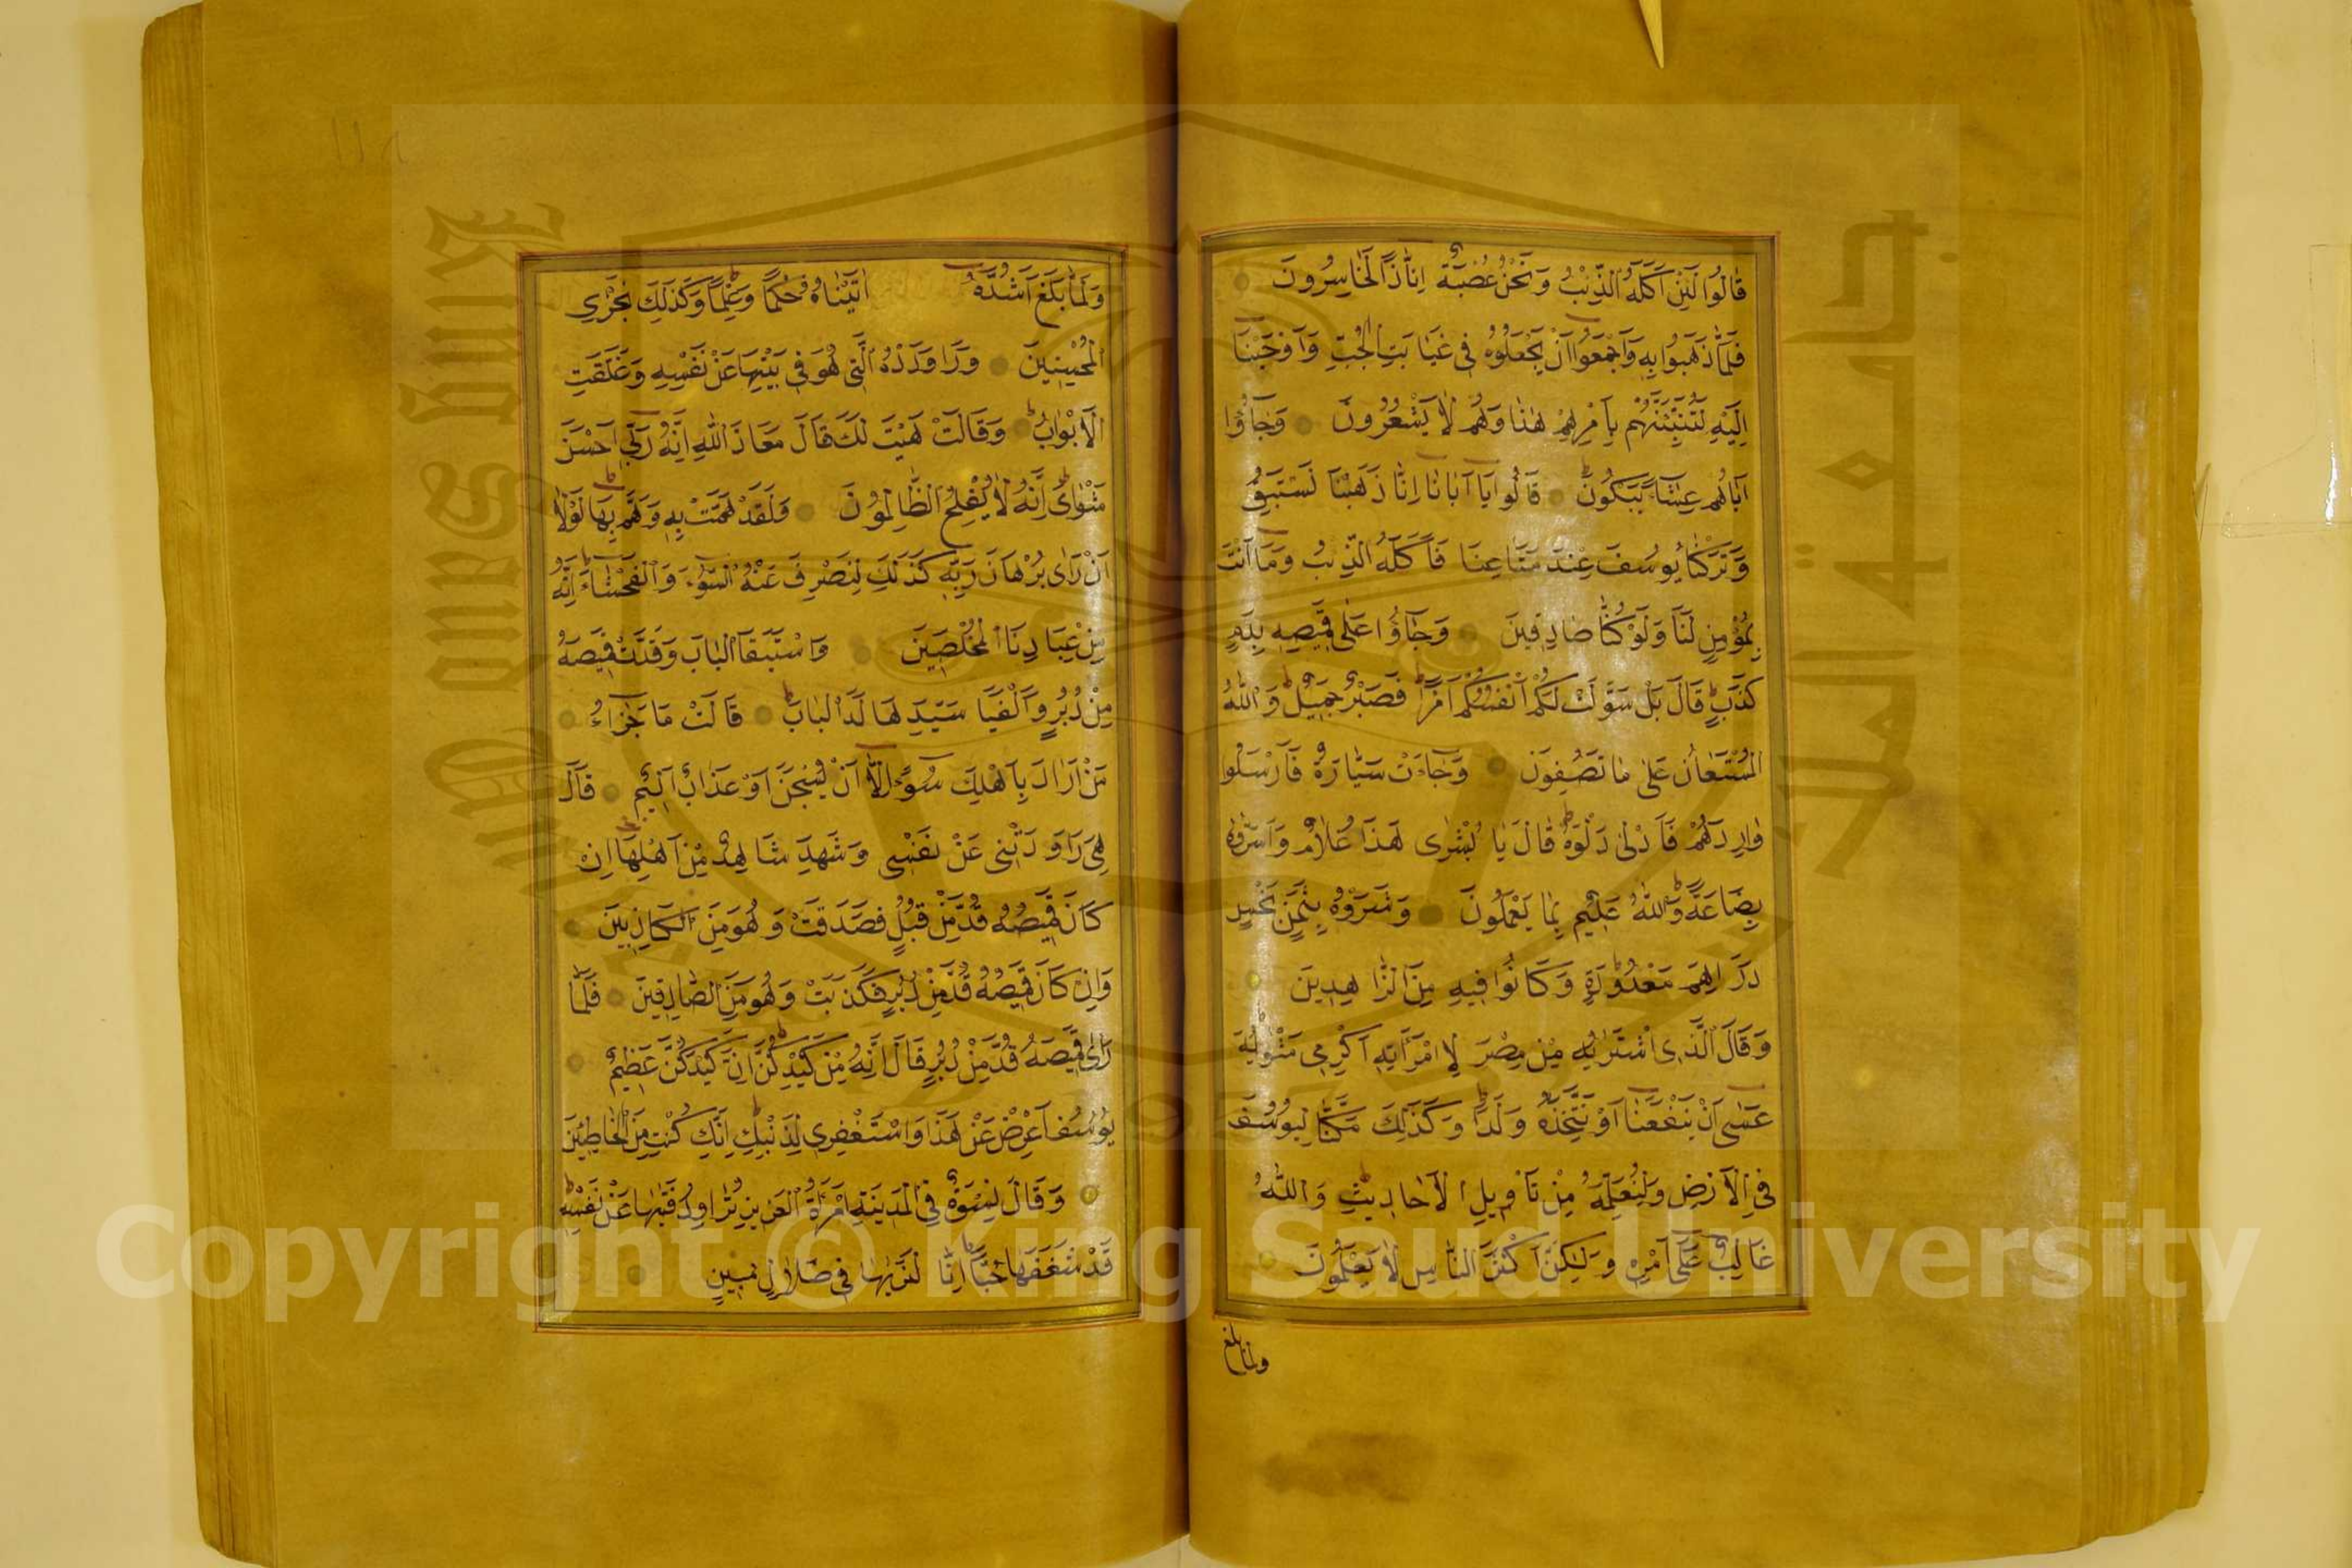 قَالُوا لَئِنْ اَكَلَهُ الذِّئْبُ وَنَحْنُ عُصْبَةٌ اِنَّا اِذًا لَخَاسِرُونَ
فَلَمَّا ذَهَبُوا بِهِ وَاَجْمَعُوا اَنْ يَجْعَلُوهُ فِي غَيَابَتِ الْجُبِّ وَاَوْحَيْنَا
اِلَيْهِ لَتُنَبِّئَنَّهُمْ بِاَمْرِهِمْ هٰذَا وَهُمْ لَا يَشْعُرُونَ وَجَاؤُا
اَبَاهُمْ عِشَاءً يَبْكُونَ قَالُوا يَا اَبَانَا اِنَّا ذَهَبْنَا نَسْتَبِقُ
وَتَرَكْنَا يُوسُفَ عِنْدَ مَتَاعِنَا فَاَكَلَهُ الذِّئْبُ وَمَا اَنْتَ
بِمُؤْمِنٍ لَنَا وَلَوْ كُنَّا صَادِقِينَ وَجَاؤُا عَلٰى قَمِيصِهِ بِدَمٍ
كَذِبٍ قَالَ بَلْ سَوَّلَتْ لَكُمْ اَنْفُسُكُمْ اَمْرًا فَصَبْرٌ جَمِيلٌ وَاللّٰهُ
الْمُسْتَعَانُ عَلٰى مَا تَصِفُونَ وَجَاءَتْ سَيَّارَةٌ فَاَرْسَلُوا
وَارِدَهُمْ فَاَدْلٰى دَلْوَهُ قَالَ يَا بُشْرٰى هٰذَا غُلَامٌ وَاَسَرُّوهُ
بِضَاعَةً وَاللّٰهُ عَلِيمٌ بِمَا يَعْمَلُونَ وَشَرَوْهُ بِثَمَنٍ بَخْسٍ
دَرَاهِمَ مَعْدُودَةٍ وَكَانُوا فِيهِ مِنَ الزَّاهِدِينَ
وَقَالَ الَّذِي اشْتَرٰيهُ مِنْ مِصْرَ لِامْرَاَتِهِ اَكْرِمِي مَثْوٰيهُ
عَسٰى اَنْ يَنْفَعَنَا اَوْ نَتَّخِذَهُ وَلَدًا وَكَذٰلِكَ مَكَّنَّا لِيُوسُفَ
فِي الْاَرْضِ وَلِنُعَلِّمَهُ مِنْ تَاْوِيلِ الْاَحَادِيثِ وَاللّٰهُ
غَالِبٌ عَلٰى اَمْرِهِ وَلٰكِنَّ اَكْثَرَ النَّاسِ لَا يَعْلَمُونَ
ولما بلغ
١١٨
وَلَمَّا بَلَغَ اَشُدَّهُ اٰتَيْنَاهُ حُكْمًا وَعِلْمًا وَكَذٰلِكَ نَجْزِي
الْمُحْسِنِينَ وَرَاوَدَتْهُ الَّتِي هُوَ فِي بَيْتِهَا عَنْ نَفْسِهِ وَغَلَّقَتِ
الْاَبْوَابَ وَقَالَتْ هَيْتَ لَكَ قَالَ مَعَاذَ اللّٰهِ اِنَّهُ رَبِّي اَحْسَنَ
مَثْوَايَ اِنَّهُ لَا يُفْلِحُ الظَّالِمُونَ وَلَقَدْ هَمَّتْ بِهِ وَهَمَّ بِهَا لَوْلَا
اَنْ رَاٰى بُرْهَانَ رَبِّهِ كَذٰلِكَ لِنَصْرِفَ عَنْهُ السُّوءَ وَالْفَحْشَاءَ اِنَّهُ
مِنْ عِبَادِنَا الْمُخْلَصِينَ وَاسْتَبَقَا الْبَابَ وَقَدَّتْ قَمِيصَهُ
مِنْ دُبُرٍ وَاَلْفَيَا سَيِّدَهَا لَدَا الْبَابِ قَالَتْ مَا جَزَاءُ
مَنْ اَرَادَ بِاَهْلِكَ سُوءًا اِلَّا اَنْ يُسْجَنَ اَوْ عَذَابٌ اَلِيمٌ قَالَ
هِيَ رَاوَدَتْنِي عَنْ نَفْسِي وَشَهِدَ شَاهِدٌ مِنْ اَهْلِهَا اِنْ
كَانَ قَمِيصُهُ قُدَّ مِنْ قُبُلٍ فَصَدَقَتْ وَهُوَ مِنَ الْكَاذِبِينَ
وَاِنْ كَانَ قَمِيصُهُ قُدَّ مِنْ دُبُرٍ فَكَذَبَتْ وَهُوَ مِنَ الصَّادِقِينَ فَلَمَّا
رَاٰى قَمِيصَهُ قُدَّ مِنْ دُبُرٍ قَالَ اِنَّهُ مِنْ كَيْدِكُنَّ اِنَّ كَيْدَكُنَّ عَظِيمٌ
يُوسُفُ اَعْرِضْ عَنْ هٰذَا وَاسْتَغْفِرِي لِذَنْبِكِ اِنَّكِ كُنْتِ مِنَ الْخَاطِئِينَ
وَقَالَ نِسْوَةٌ فِي الْمَدِينَةِ امْرَاَةُ الْعَزِيزِ تُرَاوِدُ فَتٰيهَا عَنْ نَفْسِهِ
قَدْ شَغَفَهَا حُبًّا اِنَّا لَنَرٰيهَا فِي ضَلَالٍ مُبِينٍ
Copyright © King Saud University